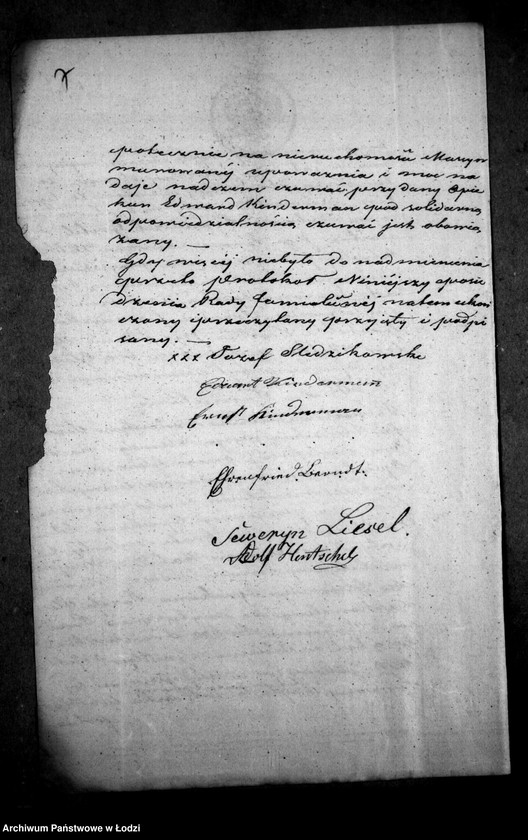 potecznie na nieruchomości Maryi
murowanéj upoważnia i moc na
daje nad czem czuwać przydany Opie
kun Edward Kinderman pod solidarną
odpowiedzialnością czuwać jest obowią
zany. —
Gdy więcej niebyło do nadmienienia
przeto protokół Niniejszy posie
dzenia Rady familijnéj na tem ukoń
czony i przeczytany przyjęty i podpi
sany. —
xxx Józef Sledzikowski
Edward Kindermann
Ernst Kinderman
Ehrenfried Berndt.
Seweryn Liesel.
Adolf Hentschel
Archiwum Państwowe w Łodzi